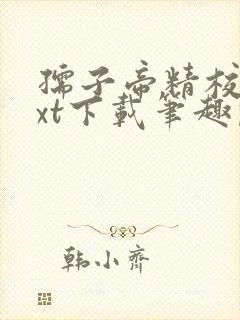 孺子帝精校
xt下载笔趣
韩小齐